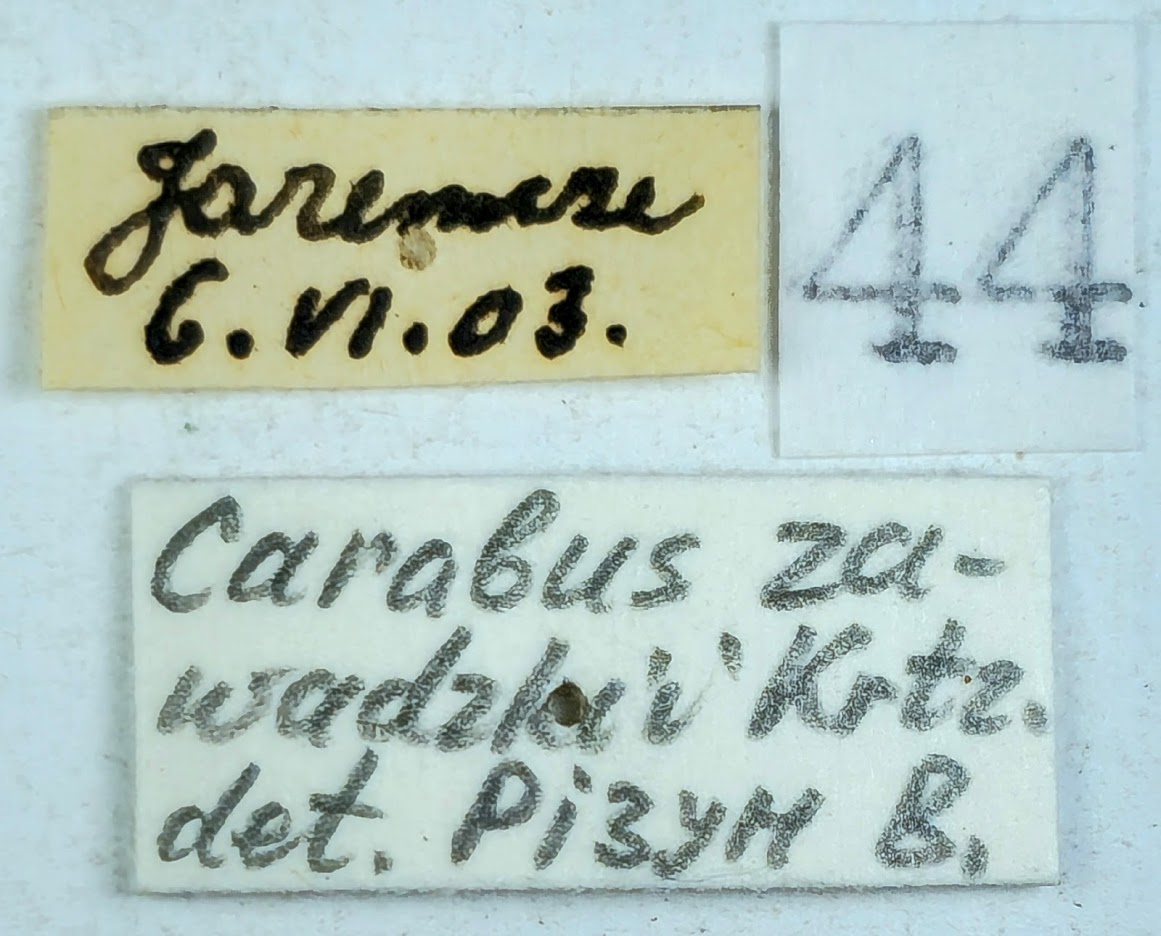 Jaremcze
6.VI.03.
44
Carabus za-
wadzkii Krtz.
det. Різун В.